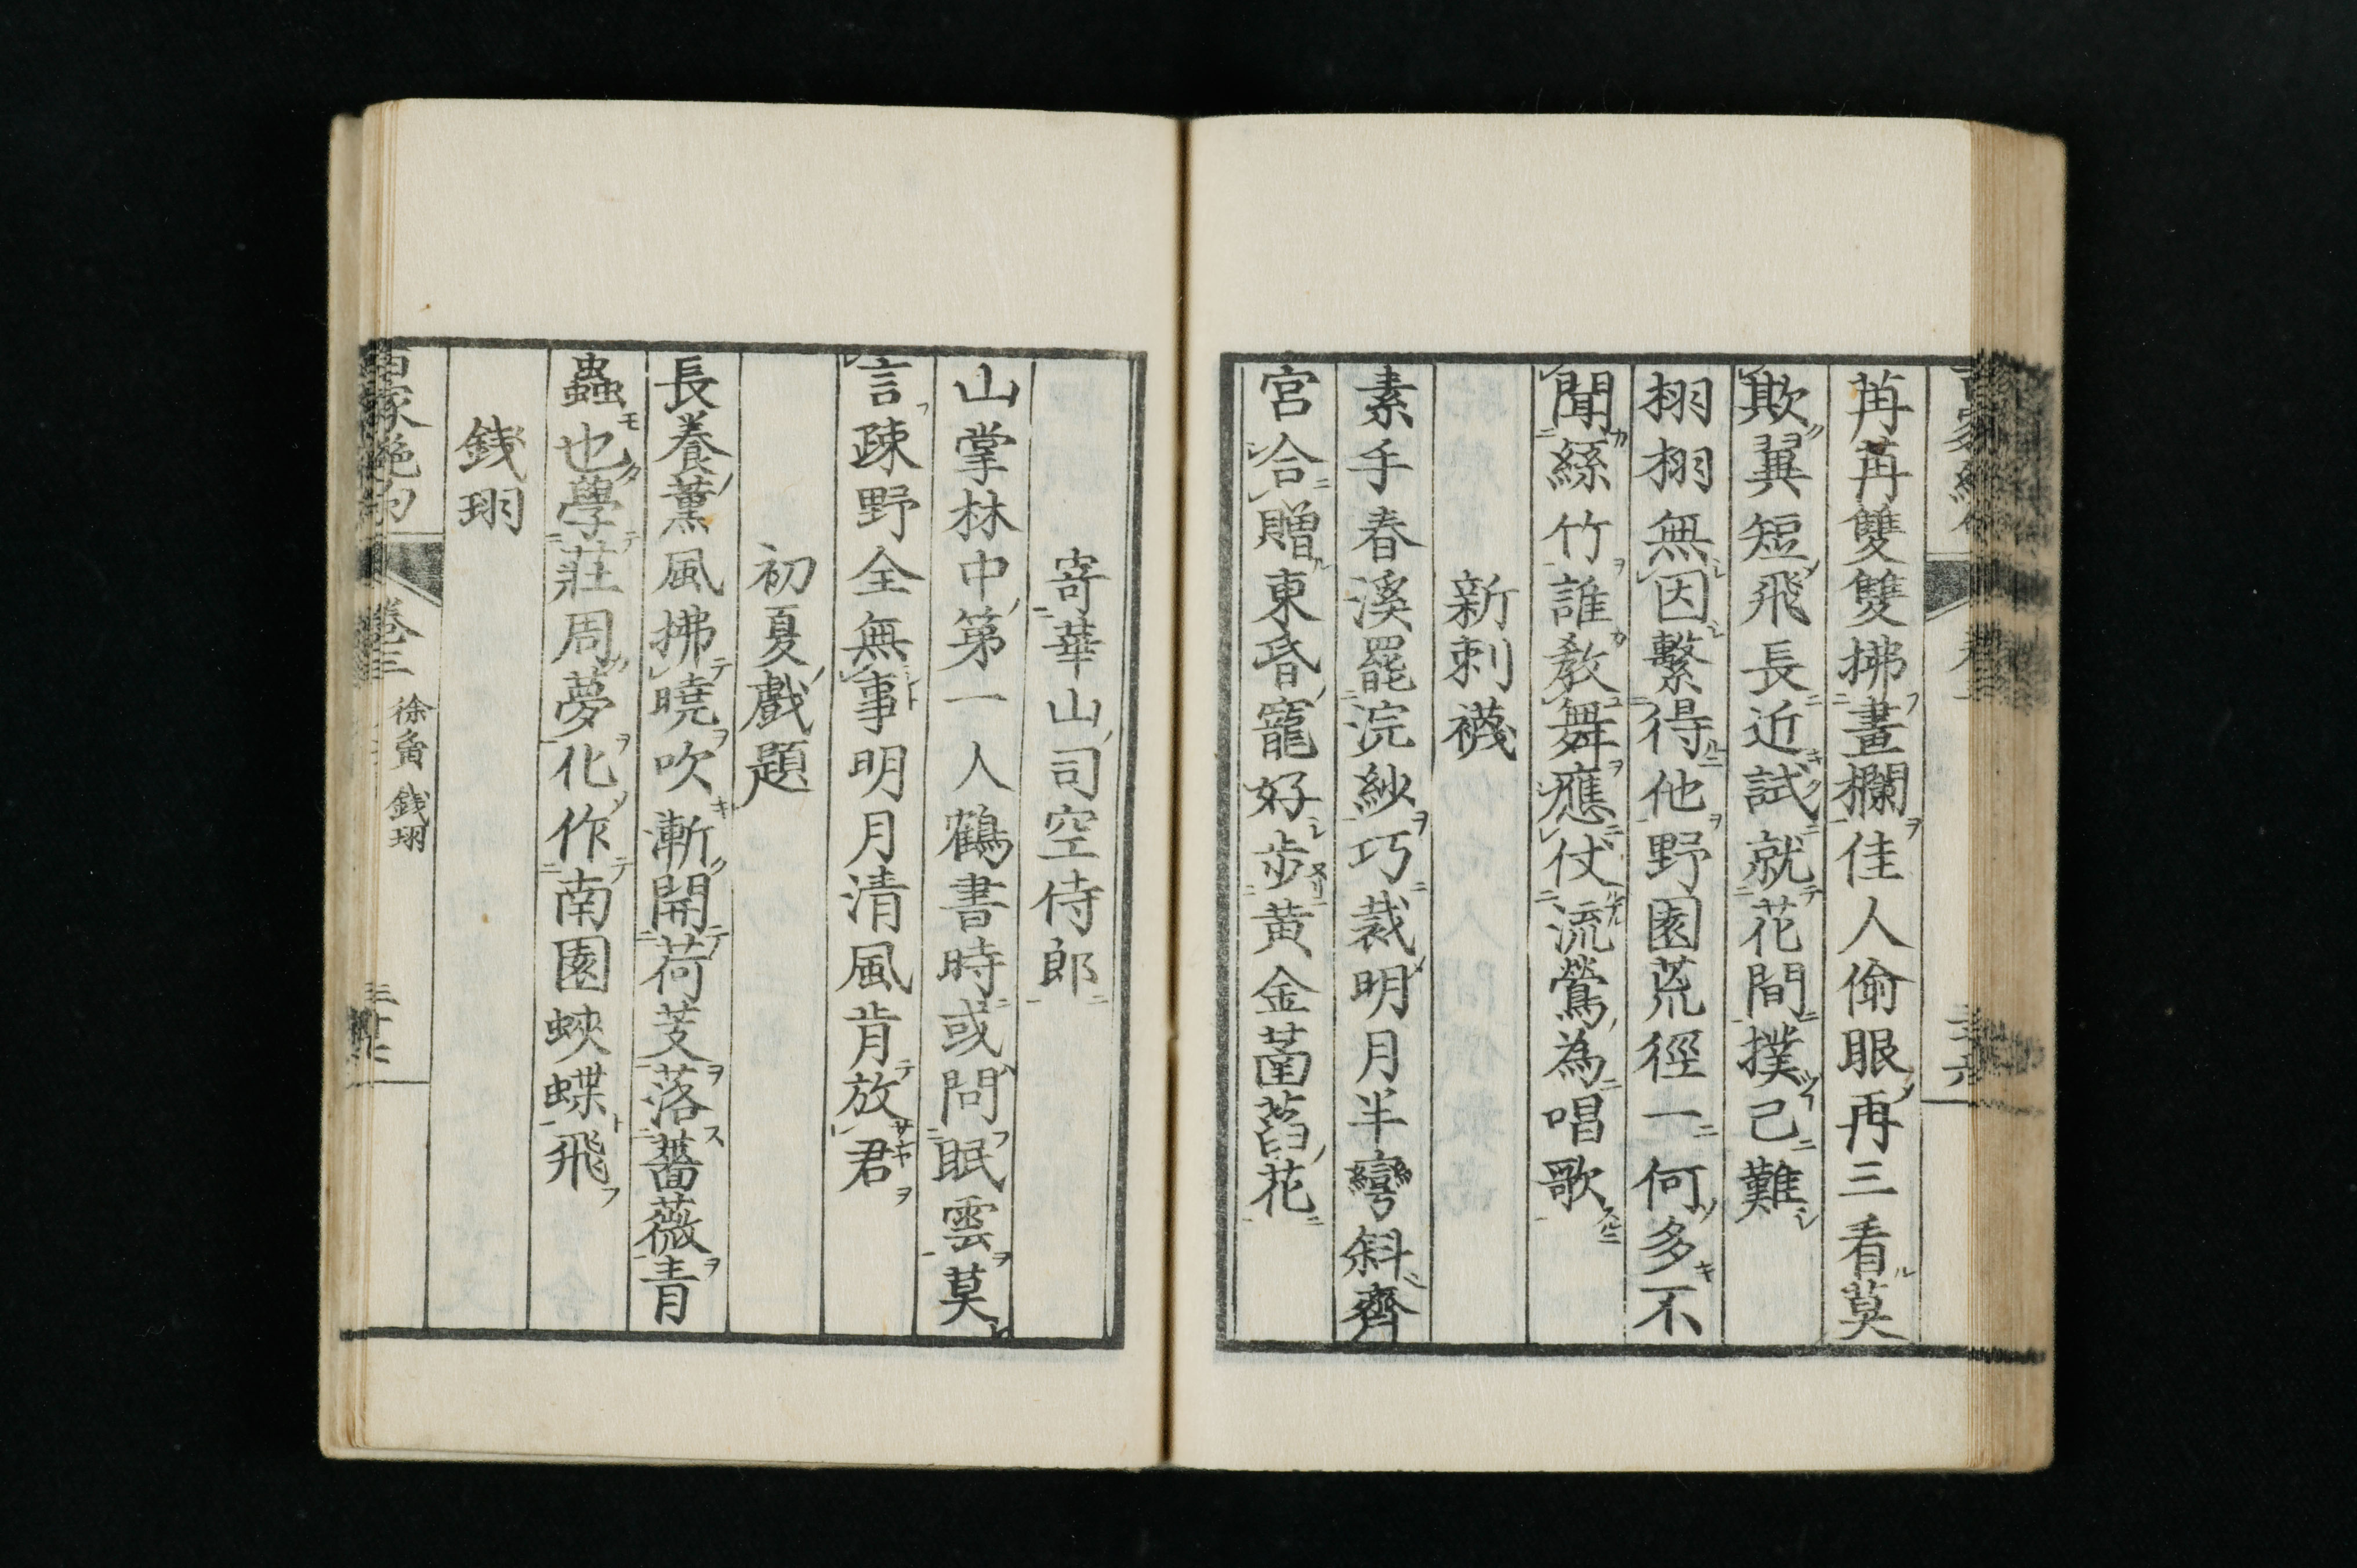 苒苒雙雙拂畫欄佳人偷眼再三看莫
欺翼短飛長近試就花間撲已難
栩栩無因繫得他野園荒徑一何多不
聞絲竹誰教舞應仗流鶯為唱歌
新刺襪
素手春溪罷浣紗巧裁明月半彎斜齊
宮合贈東昏寵好步黃金菡萏花
寄華山司空侍郎
山掌林中第一人鶴書時或問眠雲莫
言疎野全無事明月清風肯放君
初夏戲題
長養薰風拂曉吹漸開荷芰落薔薇青
蟲也學莊周夢化作南園蛺蝶飛
錢珝
百家絶句 卷三 徐夤 錢珝 三十七